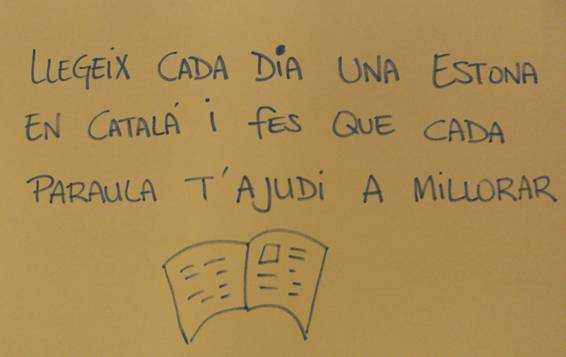 LLEGEIX CADA DIA UNA ESTONA
EN CATALÁ i fES QUE CADA
PARAULA T'AJUDI A MILLORAR